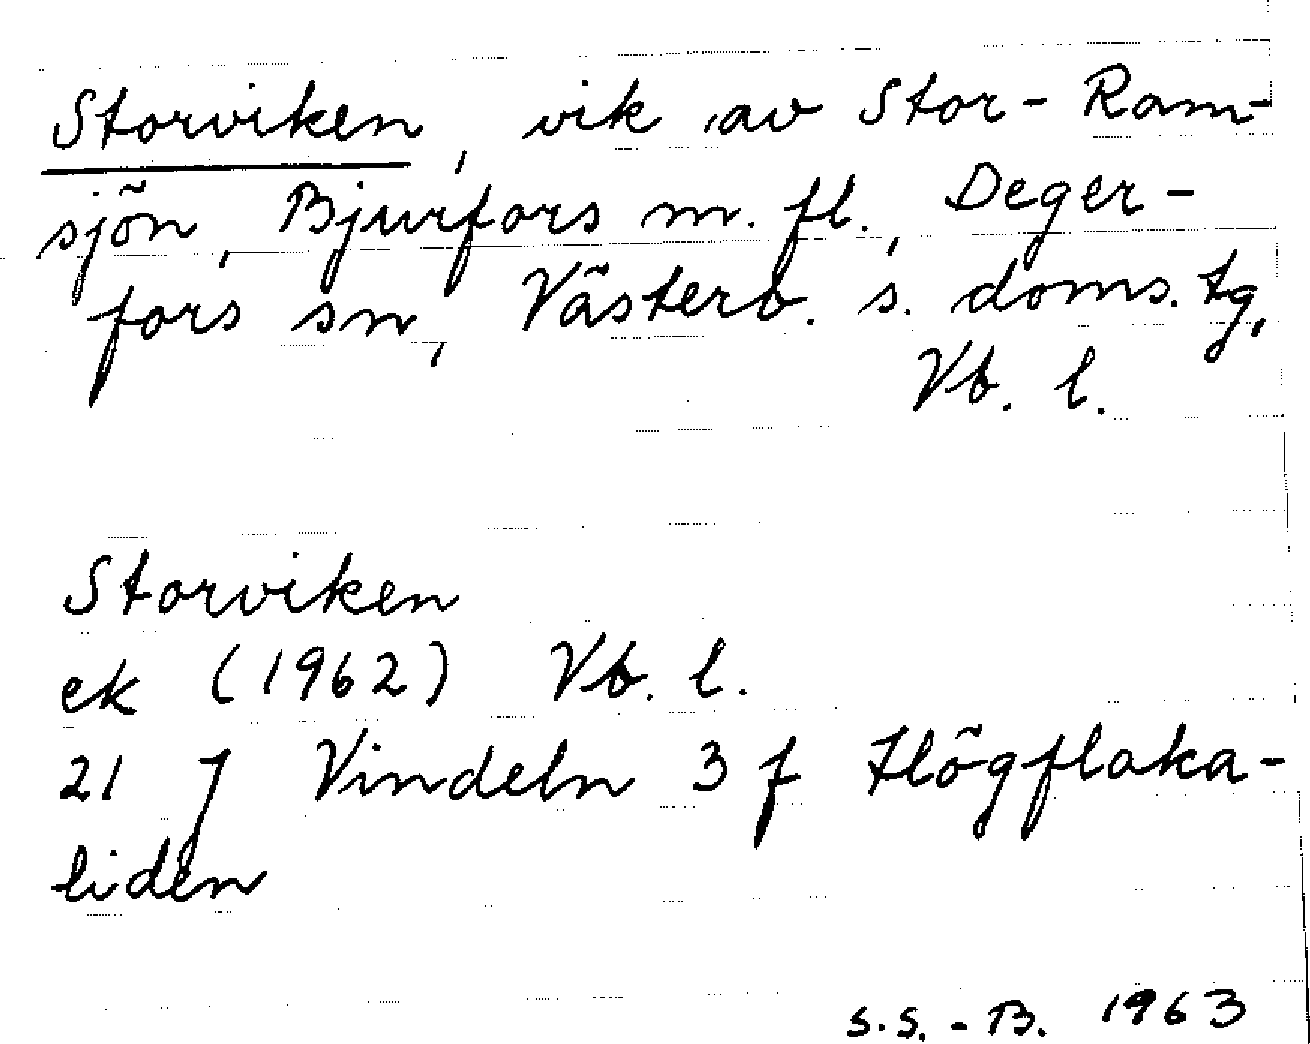 Storviken, vik av Stor-Ram-
sjön, Bjurfors m. fl., Deger-
fors sn, Västerb. s. doms. tg,
Vb. l.
Storviken
ek (1962) Vb. l.
21 J Vindeln 3 f Högflaka-
liden
S.S.-B. 1963